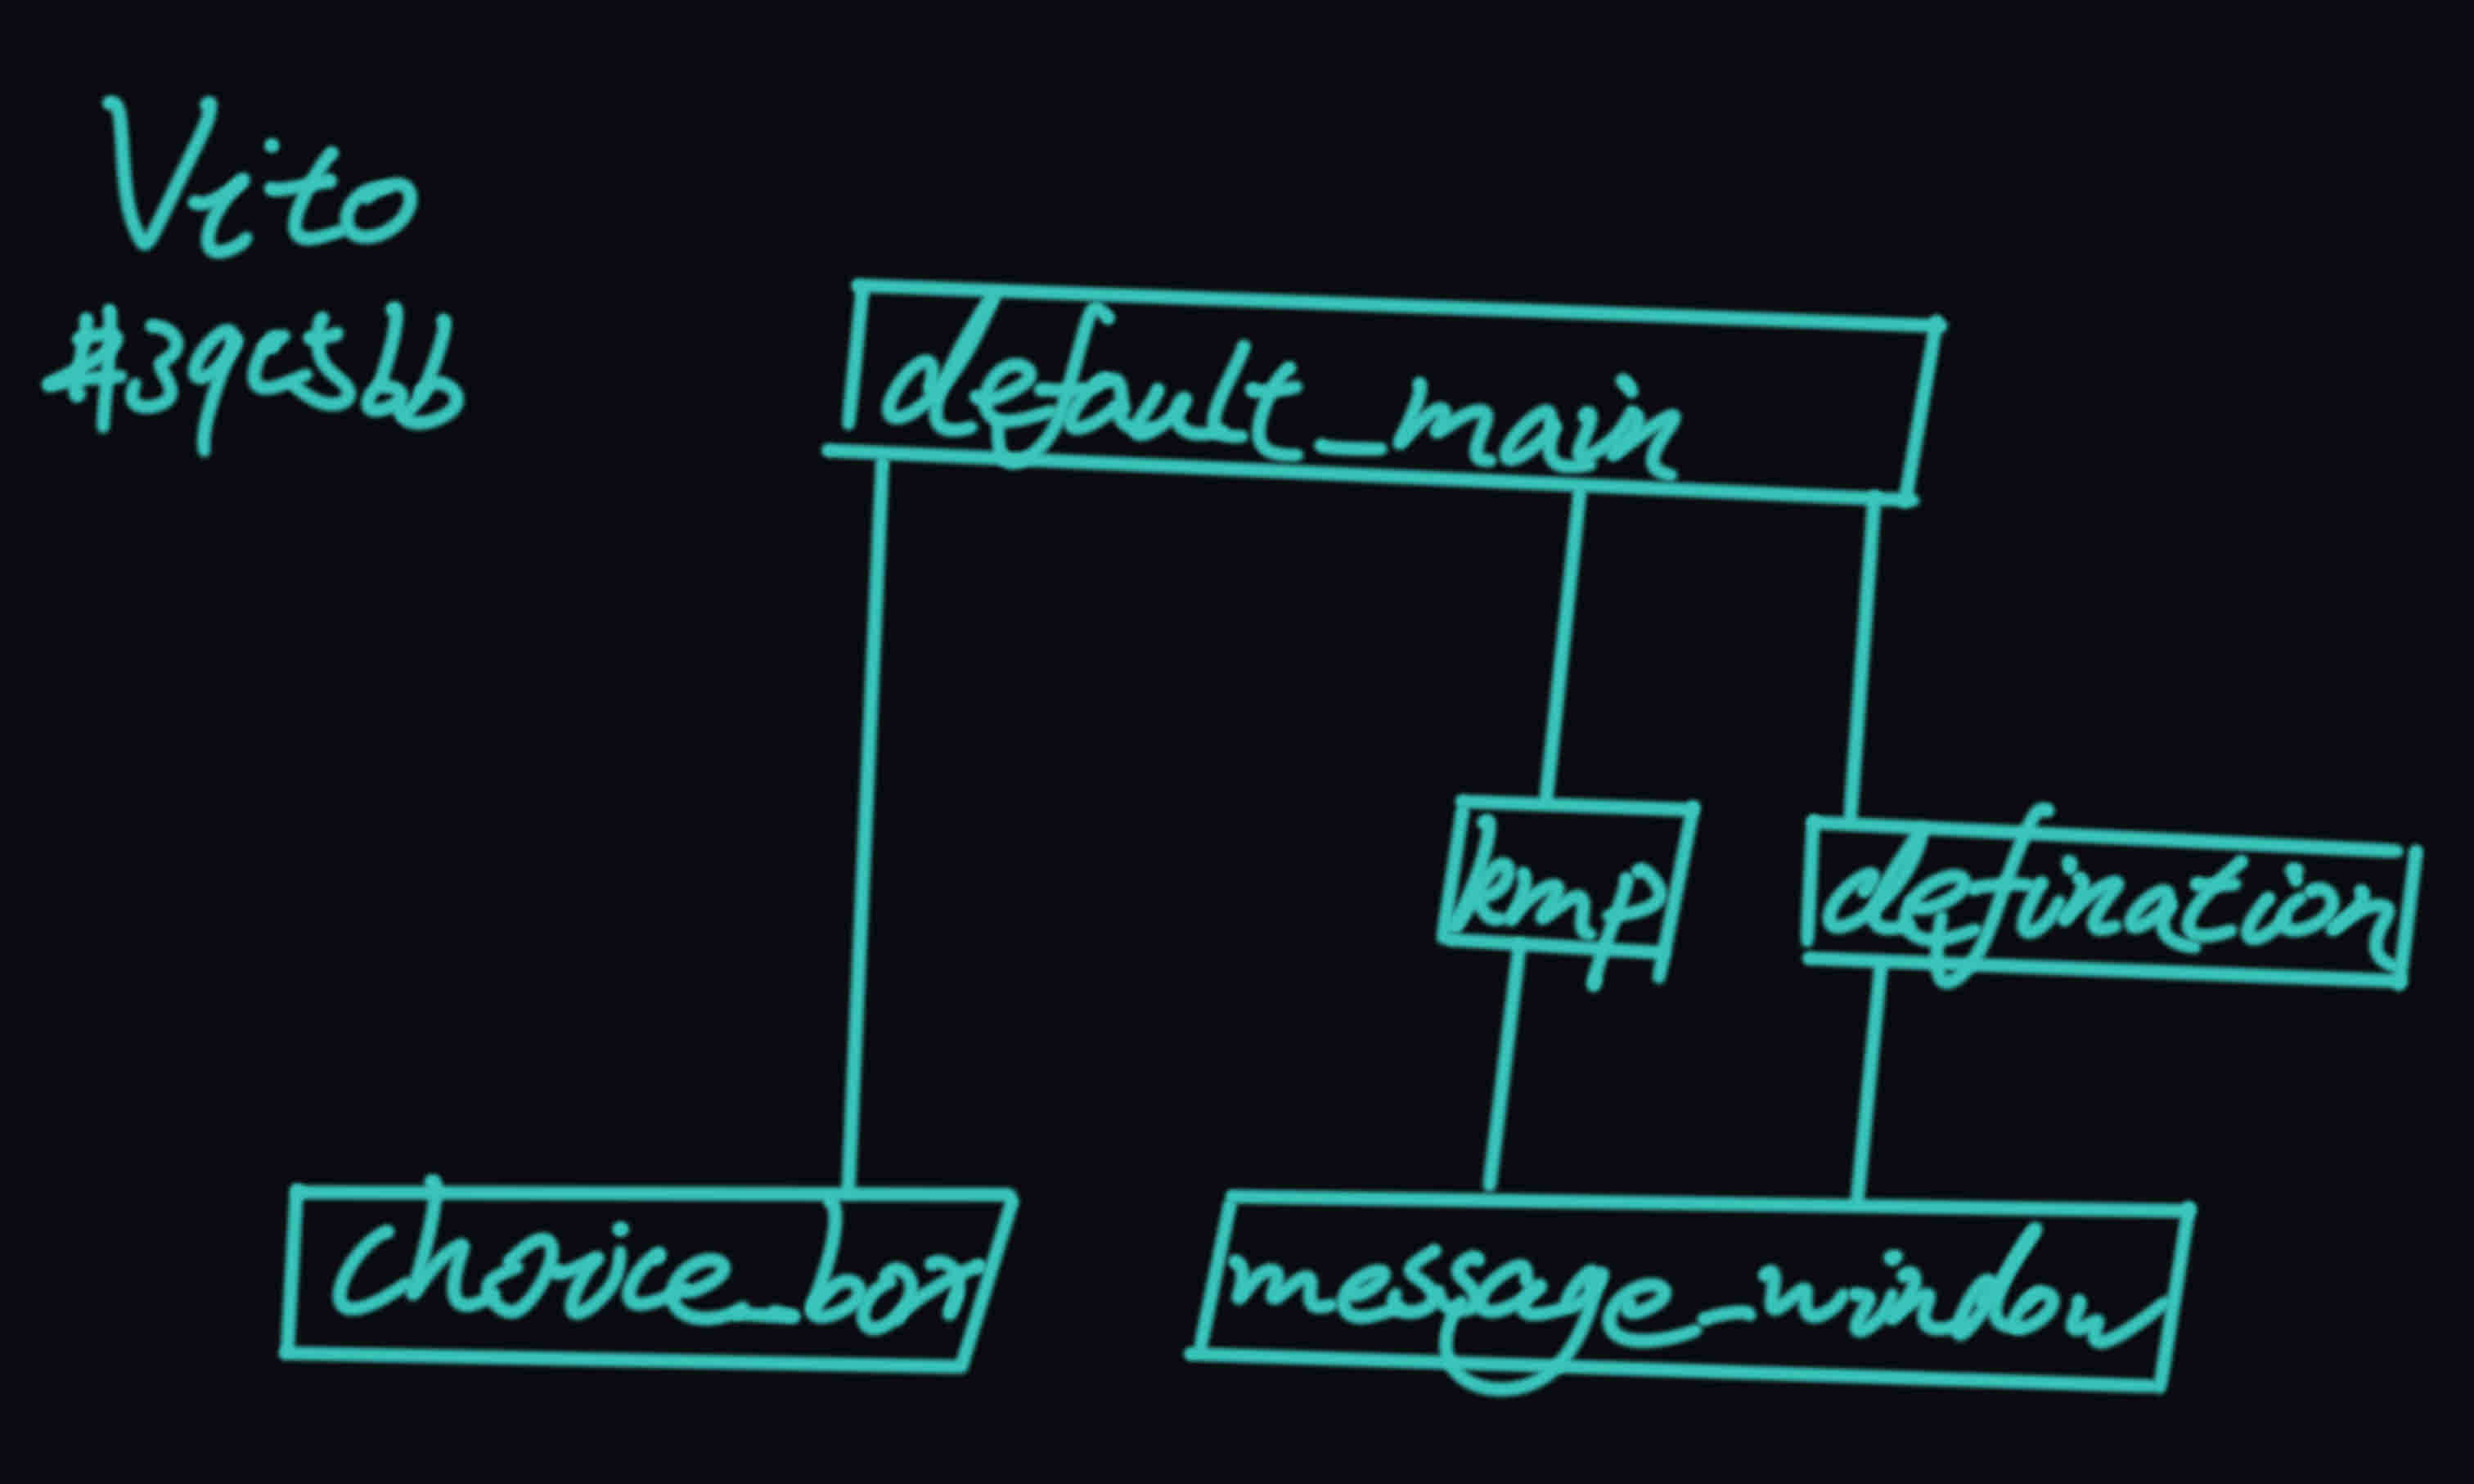 Vito
#39c5bb
default_main
kmp
defination
choice_box
message_window